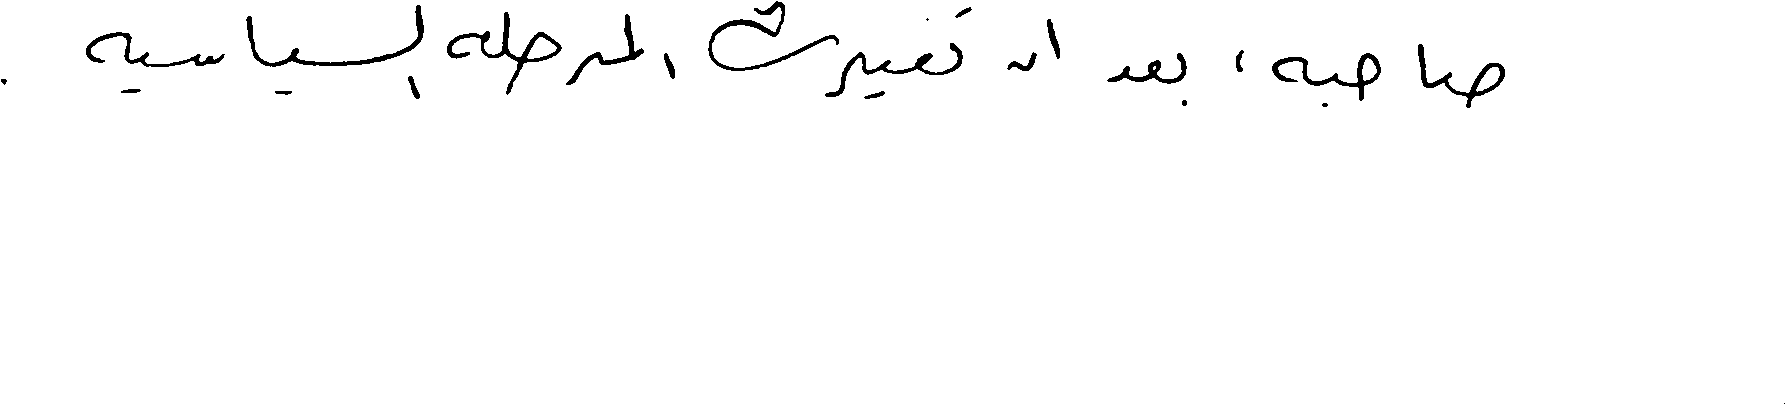 صاحبه، بعد ان تغيرت المرحلة السياسية .